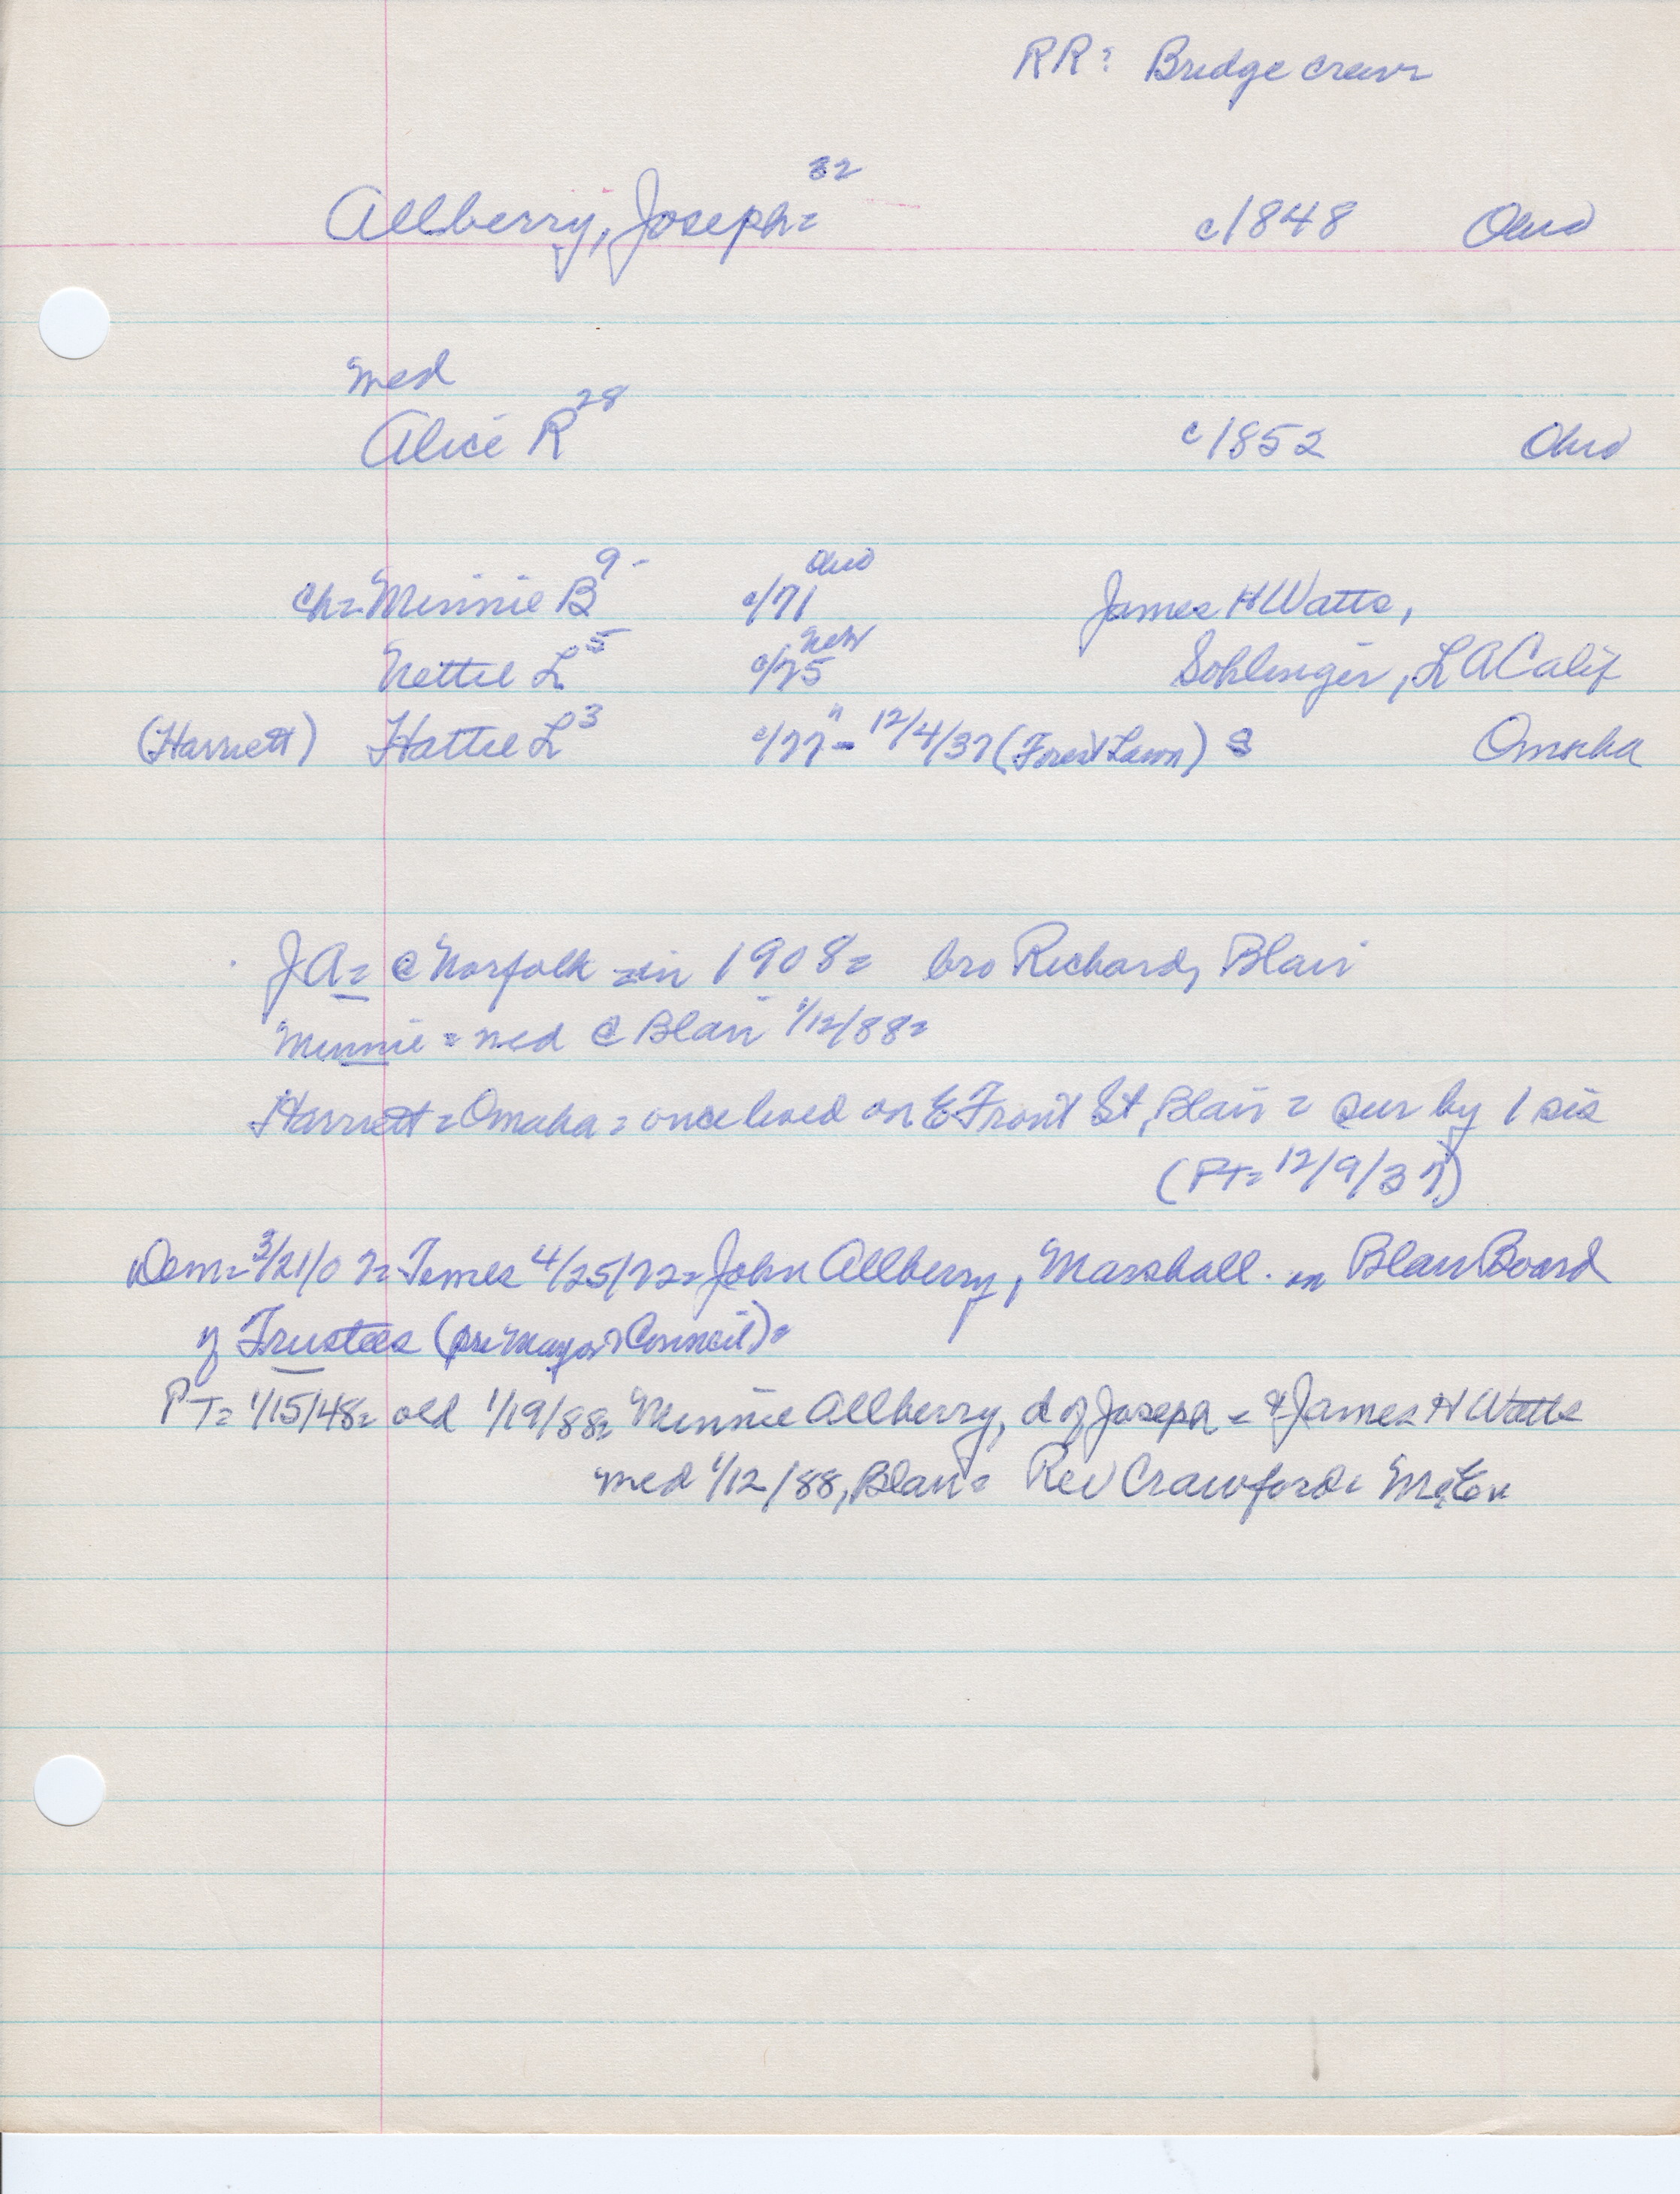 RR: Bridge crew
Allberry, Joseph= 32 c1848 Ohio
med
Alice R 28 c1852 Ohio
Ch= Minnie B 9 - c/71 Ohio James H Watts,
Nettie L 5 c/75 Neb Sohlinger, LA Calif
(Harriett) Hattie L 3 c/77 " - 12/4/37 (Forest Lawn) S Omaha
JA= @ Norfolk =in 1908= bro Richard, Blair
Minnie = med @ Blair 1/12/88=
Harriett = Omaha = once lived on E Front St, Blair = sur by 1 sis
(PT= 12/9/37)
Dem= 3/21/07= Times 4/25/72= John Allberry, Marshall. in Blair Board
of Trustees (pre Mayor Council)=
PT= 1/15/48= old 1/19/88= Minnie Allberry, d of Joseph = & James H Watts
med 1/12/88, Blair= Rev Crawford=